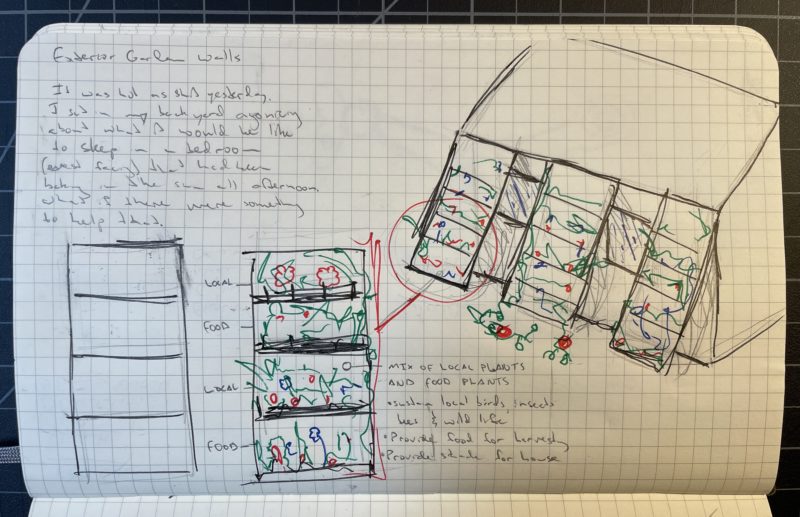 Exterior Garden Walls
It was hot as shit yesterday.
I sat in my backyard agonizing
about what it would be like
to sleep in a bedroom
(west facing) that had been
baking in the sun all afternoon.
What if there were something
to help that.
LOCAL
FOOD
LOCAL
FOOD
MIX OF LOCAL PLANTS
AND FOOD PLANTS
• sustain local birds, insects
bees & wild life
• Provide food for harvesting
• Provide shade for house